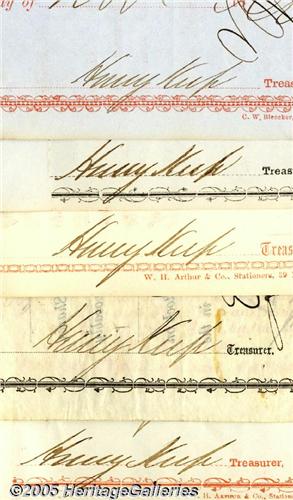 Henry Keep Treas
C. W. Bleecker,
Henry Keep Treas
Henry Keep Treas
W. H. Arthur & Co., Stationers, 39
Henry Keep Treasurer.
Henry Keep Treasurer,
H. Arthur & Co., Station
©2005 HeritageGalleries